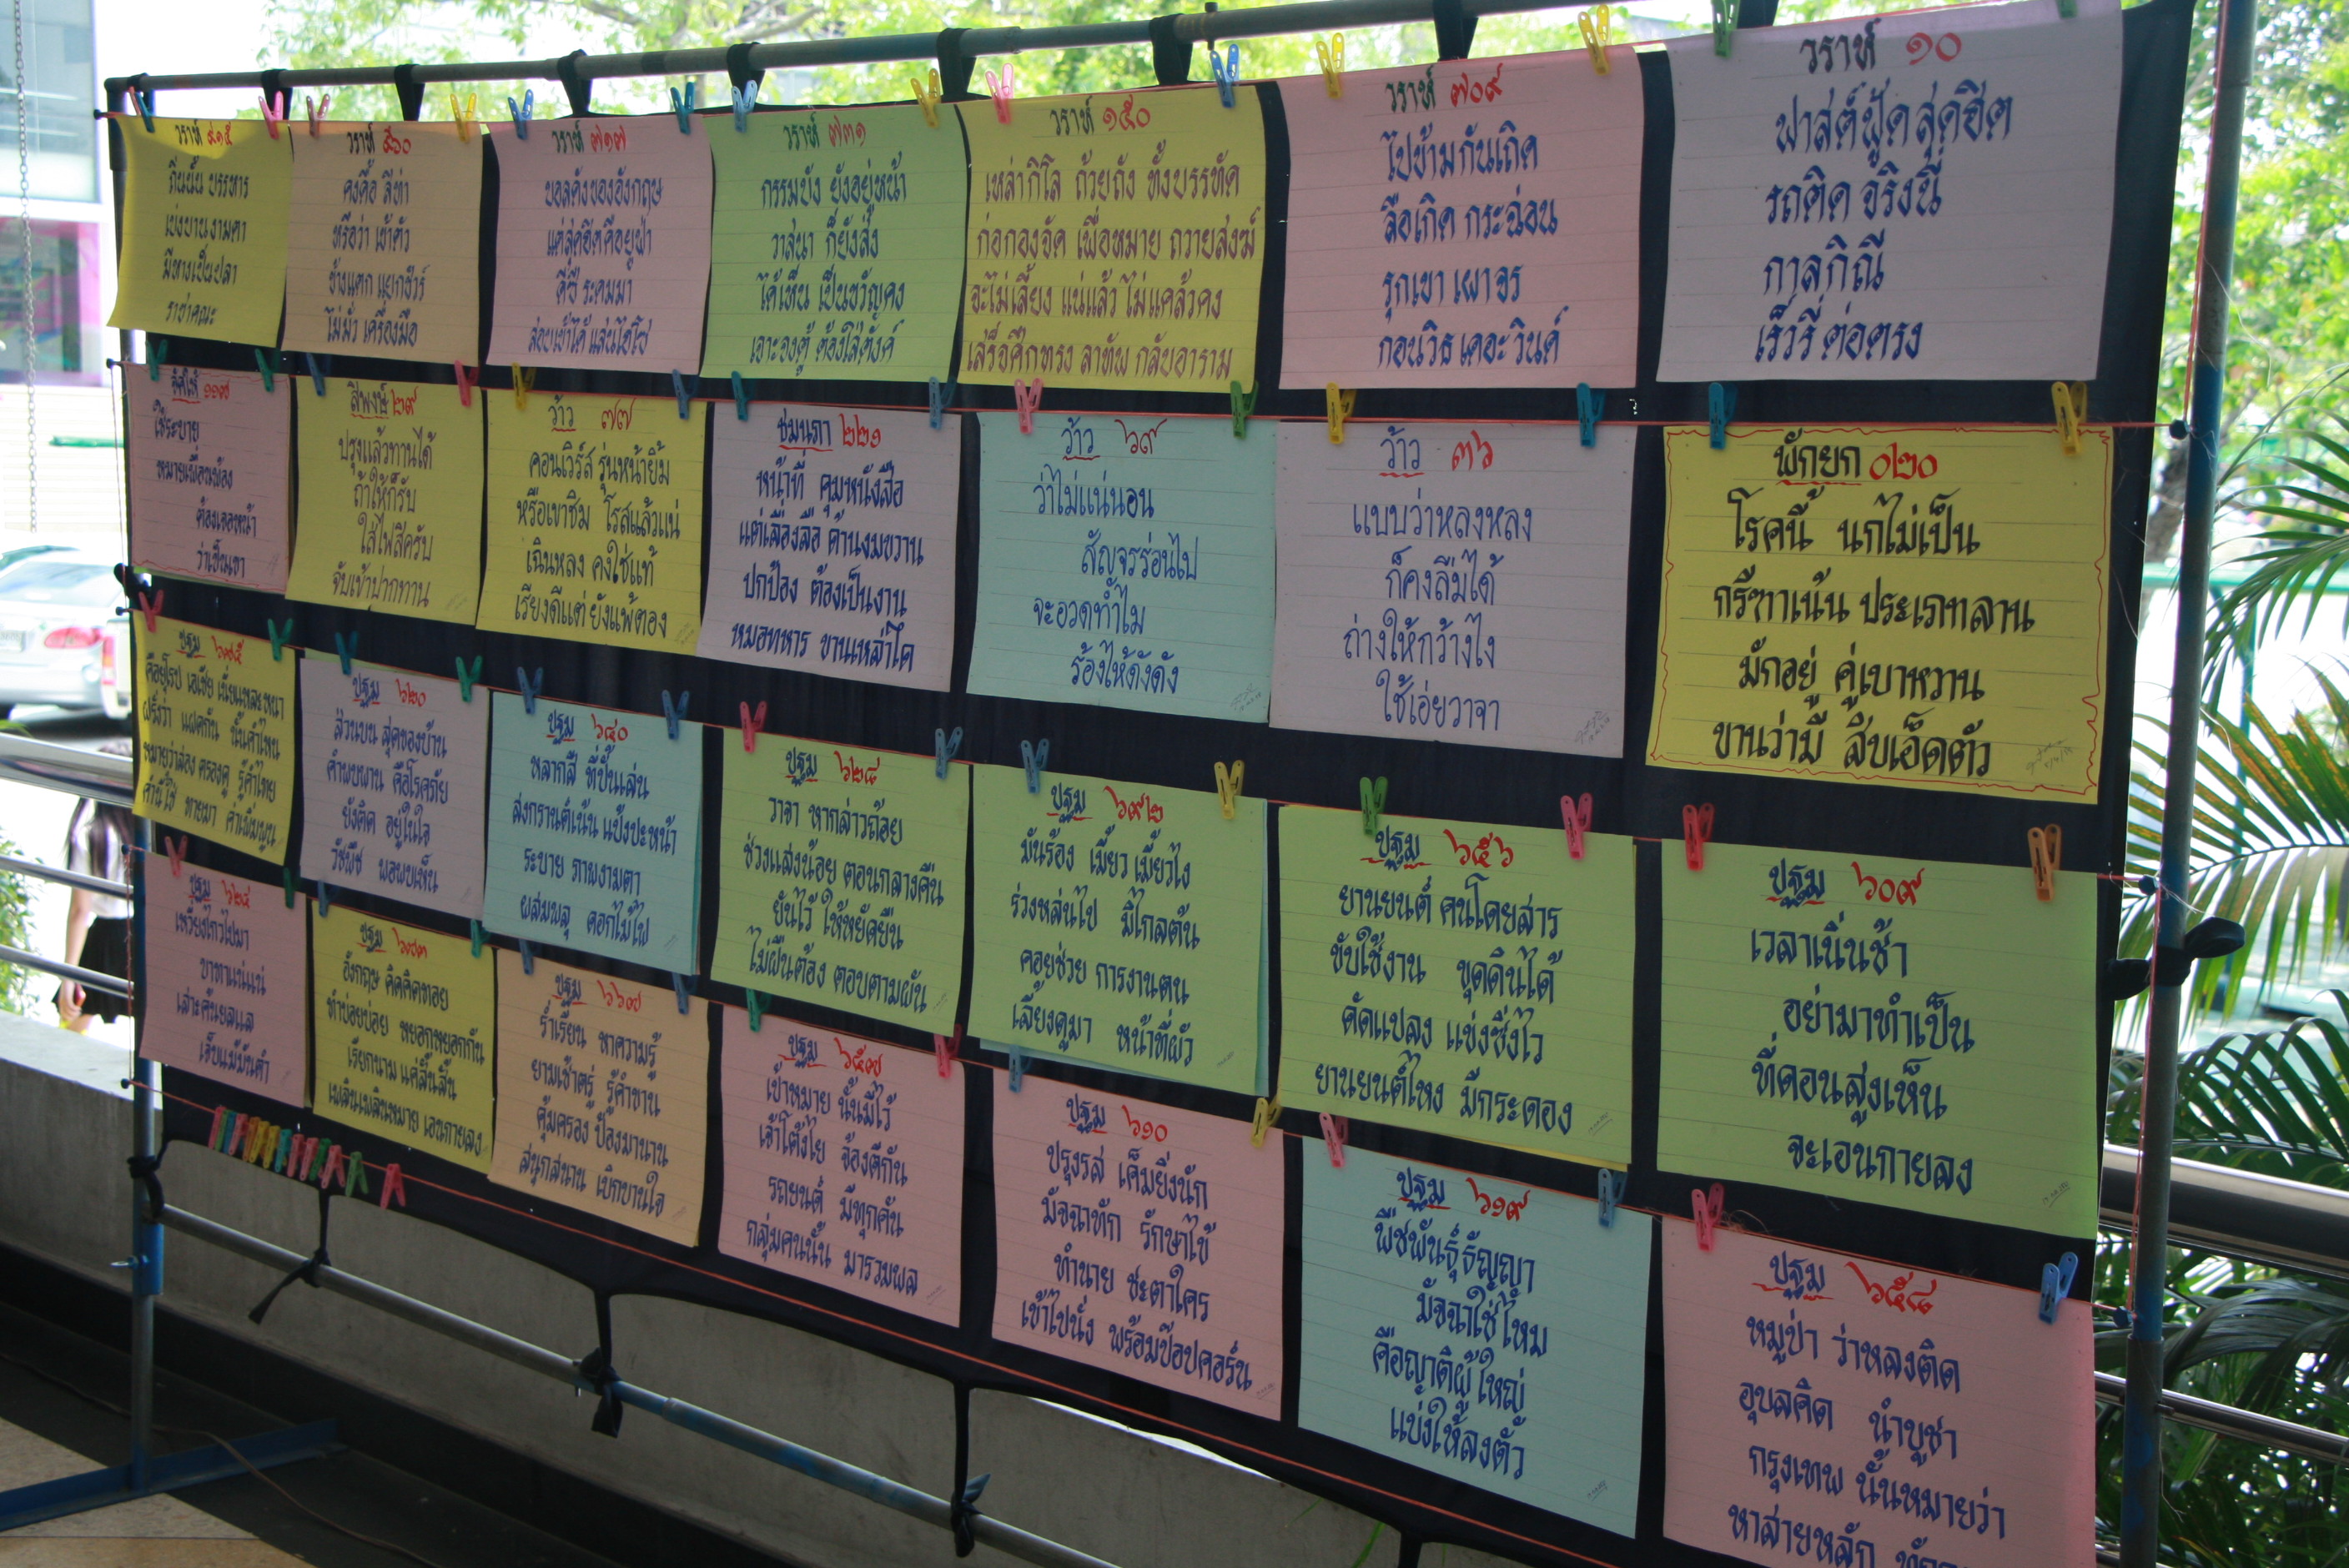 วราห์ ๙๑๕
ถิ่นนั้น บรรหาร
เบ่งบานงามตา
มีหางเป็นปลา
ราชาคณะ
วราห์ ๕๖๐
คงดื้อ ลีท่า
หรือว่า เข้าตัว
ข้างแตก แยกชัวร์
ไม่มั่ว เครื่องมือ
วราห์ ๗๑๗
บอลดังของอังกฤษ
แต่สุดฮิตคืออยู่ฟ้า
ดีซี ระดมมา
วราห์ ๗๓๑
กรรมบัง ยังอยู่หน้า
วาสนา ก็ยังส่ง
ได้เห็น เป็นขวัญคง
เจาะจงตู้ ต้องใส่ตังค์
วราห์ ๑๕๐
เหล่ากิโล ถ้วยถัง ทั้งบรรทัด
ก่อกองจัด เพื่อหมาย ถวายสงฆ์
จะไม่เลี้ยง แน่แล้ว ไม่แคล้วคง
เสร็จศึกทรง ลาทัพ กลับอาราม
วราห์ ๗๐๙
ไปข้ามกันเถิด
ลือเกิด กระฉ่อน
รุกเขา เผาจร
ก่อนวิธ เดอะวินด์
วราห์ ๑๐
ฟาสต์ฟู้ดสุดฮิต
รถติด จริงนี้
กาลกิณี
เร็วรี่ ต่อตรง
ใช้ระบาย
หมายเพื่อนพ้อง
ต้องเจอหน้า
ว่าเข็ญเขา
สิพงษ์ ๒๙
ปรุงแล้วทานได้
ถ้าให้ก็รับ
ใส่ไฟสิครับ
จับเข้าปากทาน
ว้าว ๗๗
คอนเวิร์ส รุ่นหน้ายิ้ม
หรือเขาชิม โรสแล้วแน่
เฉินหลง คงใช่แท้
เรียงดีแต่ ยังแพ้ตอง
ชมนภา ๒๒๑
หน้าที่ คุมหนังสือ
แต่เลื่องลือ ด้านงมขวาน
ปกป้อง ต้องเป็นงาน
หมอทหาร ขานเหล่าใด
ว้าว ๖๙
ว่าไม่แน่นอน
สัญจรร่อนไป
จะอวดทำไม
ร้องไห้ดังดัง
ว้าว ๓๖
แบบว่าหลงหลง
ก็คงลืมได้
ถ่างให้กว้างไง
ใช้เอ่ยวาจา
พักยก ๐๒๐
โรคนี้ นกไม่เป็น
กรีฑาเน้น ประเภทลาน
มักอยู่ คู่เบาหวาน
ขานว่ามี สิบเอ็ดตัว
ปฐม ๖๗๕
คือยุโรป เอเชีย เนี่ยแหละหนา
ฝรั่งว่า แฝดกัน นั้นคำไหน
หมายว่าส่อง ตรองดู รู้คำไทย
คำนี้ใช้ ทายมา ค่าเพิ่มพูน
ปฐม ๖๒๐
ส่วนบน สุดของบ้าน
คำพบพาน คือโรคภัย
ยังติด อยู่ในใจ
วัชพืช พอพบเห็น
ปฐม ๖๔๐
หลากสี ที่ปั้นเล่น
สงกรานต์เน้น แป้งปะหน้า
ระบาย ภาพงามตา
ผสมพลุ ดอกไม้ไฟ
ปฐม ๖๒๘
วาจา หากล่าวถ้อย
ช่วงแสงน้อย ตอนกลางคืน
ยันไว้ ให้หยัดยืน
ไม่ฝืนต้อง ตอบตามผัน
ปฐม ๖๙๒
มันร้อง เมี้ยวเมี้ยวไง
ร่วงหล่นไป มิไกลต้น
คอยช่วย การงานตน
เลี้ยงดูมา หน้าที่ผัว
ปฐม ๖๕๖
ยานยนต์ คนโดยสาร
ขับใช้งาน ขุดดินได้
ดัดแปลง แข่งซิ่งไว
ยานยนต์ไหง มีกระดอง
ปฐม ๖๐๙
เวลาเนิ่นช้า
อย่ามาทำเป็น
ที่ดอนสูงเห็น
จะเอนกายลง
ปฐม ๖๒๕
เหวี่ยงไกวไปมา
บาทาแน่แน่
เสาะค้นยลแล
เจ็บแม้มันตำ
ปฐม ๖๗๓
อังกฤษ คิดคิดหอย
ทำบ่อยบ่อย หยอกหยอกกัน
เรียกนาม แค่สั้นสั้น
เพลินเพลินหมาย เอนกายลง
ปฐม ๖๖๗
ร่ำเรียน หาความรู้
ยามเช้าตรู่ รู้คำขาน
คุ้มครอง ป้องมานาน
สนุกสนาน เบิกบานใจ
ปฐม ๖๕๗
เป้าหมาย นั้นมีไว้
เจ้าโต้งไย จ้องตีกัน
รถยนต์ มีทุกคัน
กลุ่มคนนั้น มารวมพล
ปฐม ๖๑๐
ปรุงรส เค็มยิ่งนัก
มัจฉาทัก รักษาไข้
ทำนาย ชะตาใคร
เข้าไปนั่ง พร้อมป๊อปคอร์น
ปฐม ๖๑๙
พืชพันธุ์ธัญญา
มัจฉาใช่ไหม
คือญาติผู้ใหญ่
แบ่งให้ลงตัว
ปฐม ๖๕๘
หมูป่า ว่าหลงติด
อุบลคิด นำบูชา
กรุงเทพ นั้นหมายว่า
หาสายหลัก